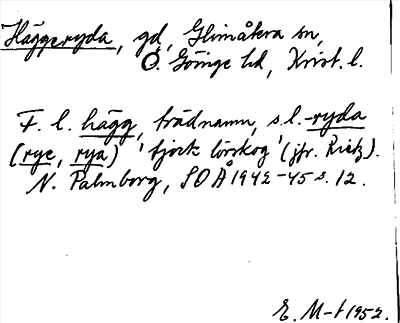 Häggeryda, gd, Glimåkra sn,
Ö. Göinge hd, Krist. l.
F. l. hägg, trädnamn, s.l. -ryda
(rye, rya) 'tjock lövskog' (jfr. Rietz).
N. Palmborg, SOÅ 1942-45 s. 12.
E. M-t 1952.